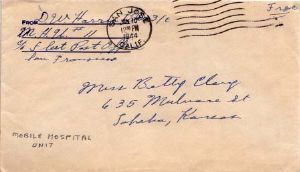 FROM D.W. Harris
M.H. # 11
c/o Fleet Post Office
San Francisco
SAN JOSE
12 30 PM
1944
CALIF.
Free
Miss Betty Clay
635 Mulvane St
Topeka, Kansas
MOBILE HOSPITAL
UNIT